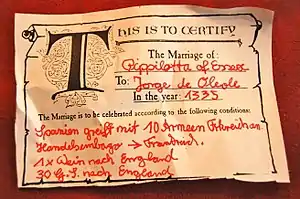 THIS IS TO CERTIFY
The Marriage of:
Pippilotta of Essex
To: Jorge de Oleole
In the year: 1335
The Marriage is to be celebrated according to the following conditions:
Spanien greift mit 10 Armeen Frkreich an.
Handelsembargo → Frankreich.
1x Wein nach England
30 nach England